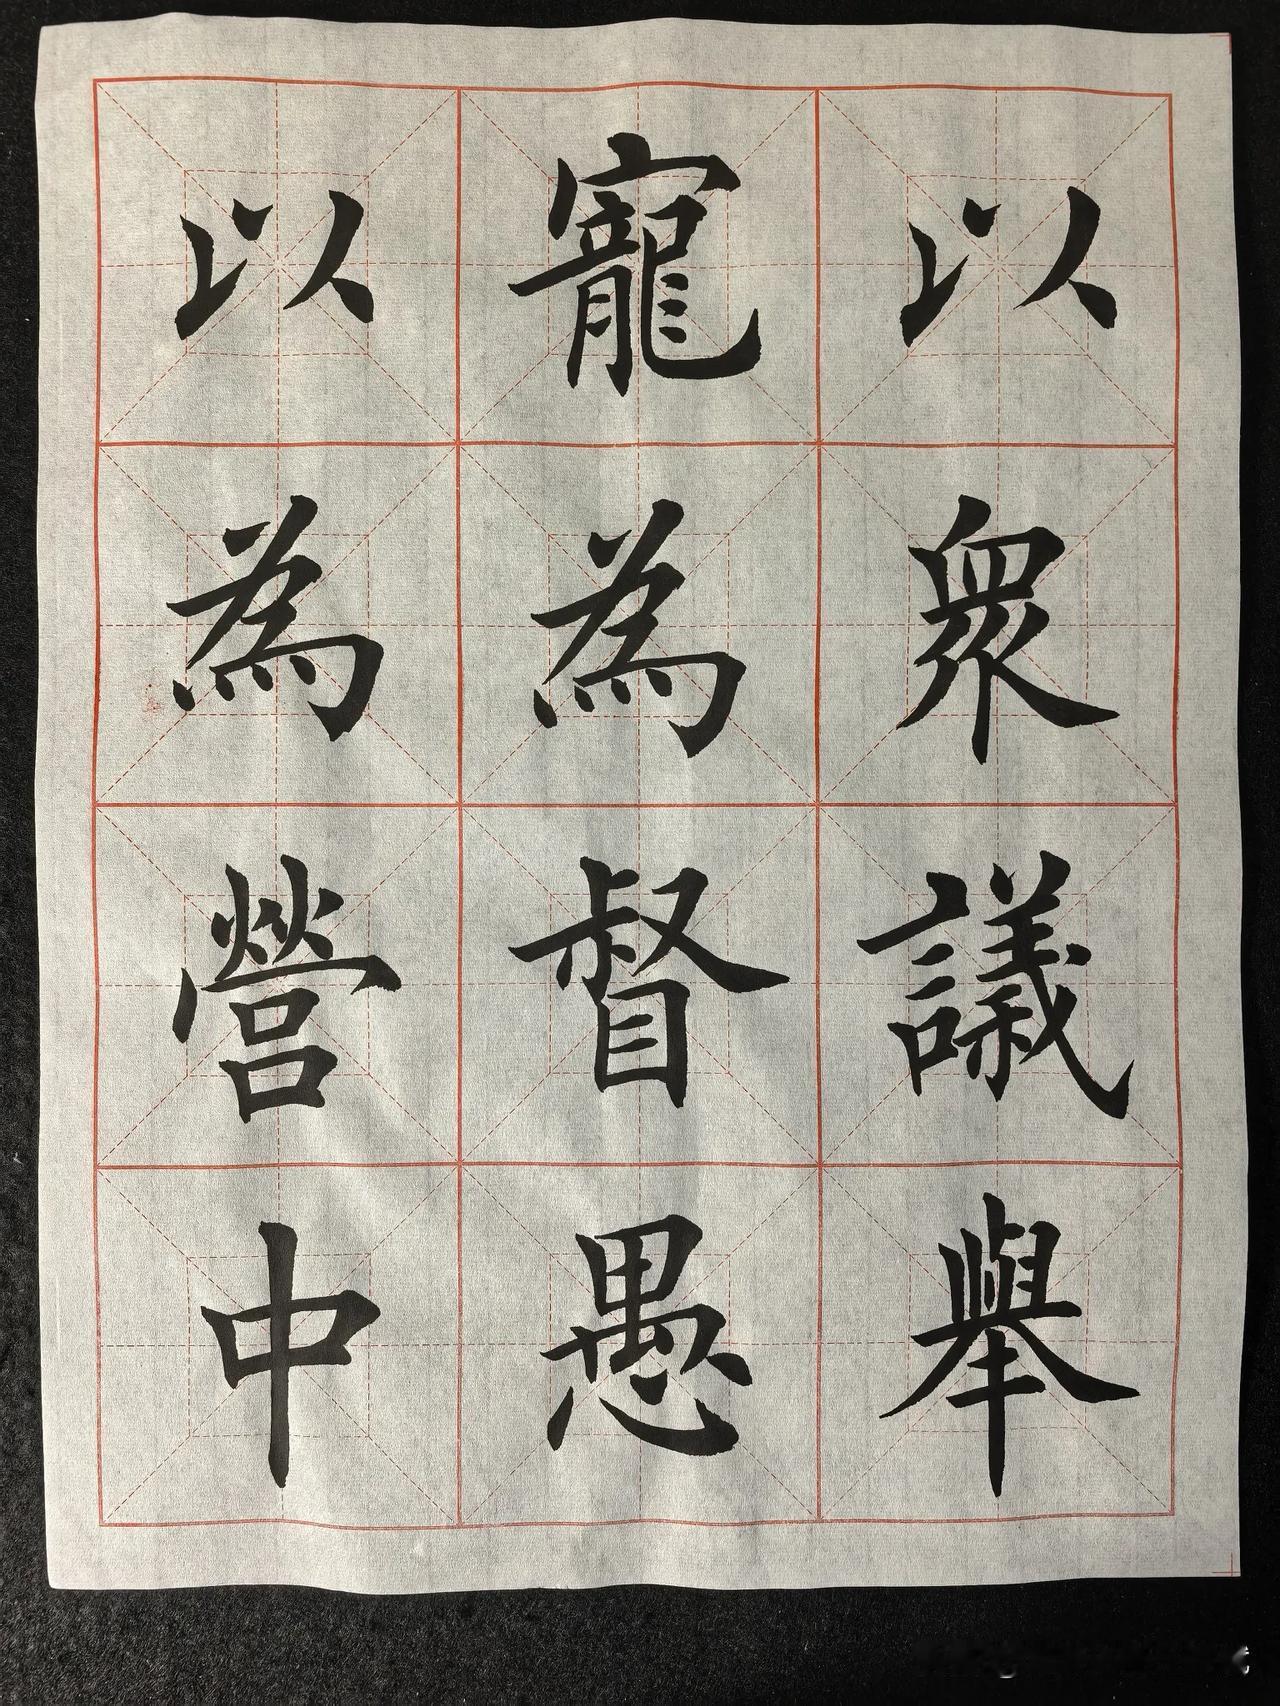 以眾議舉
寵為督愚
以為營中